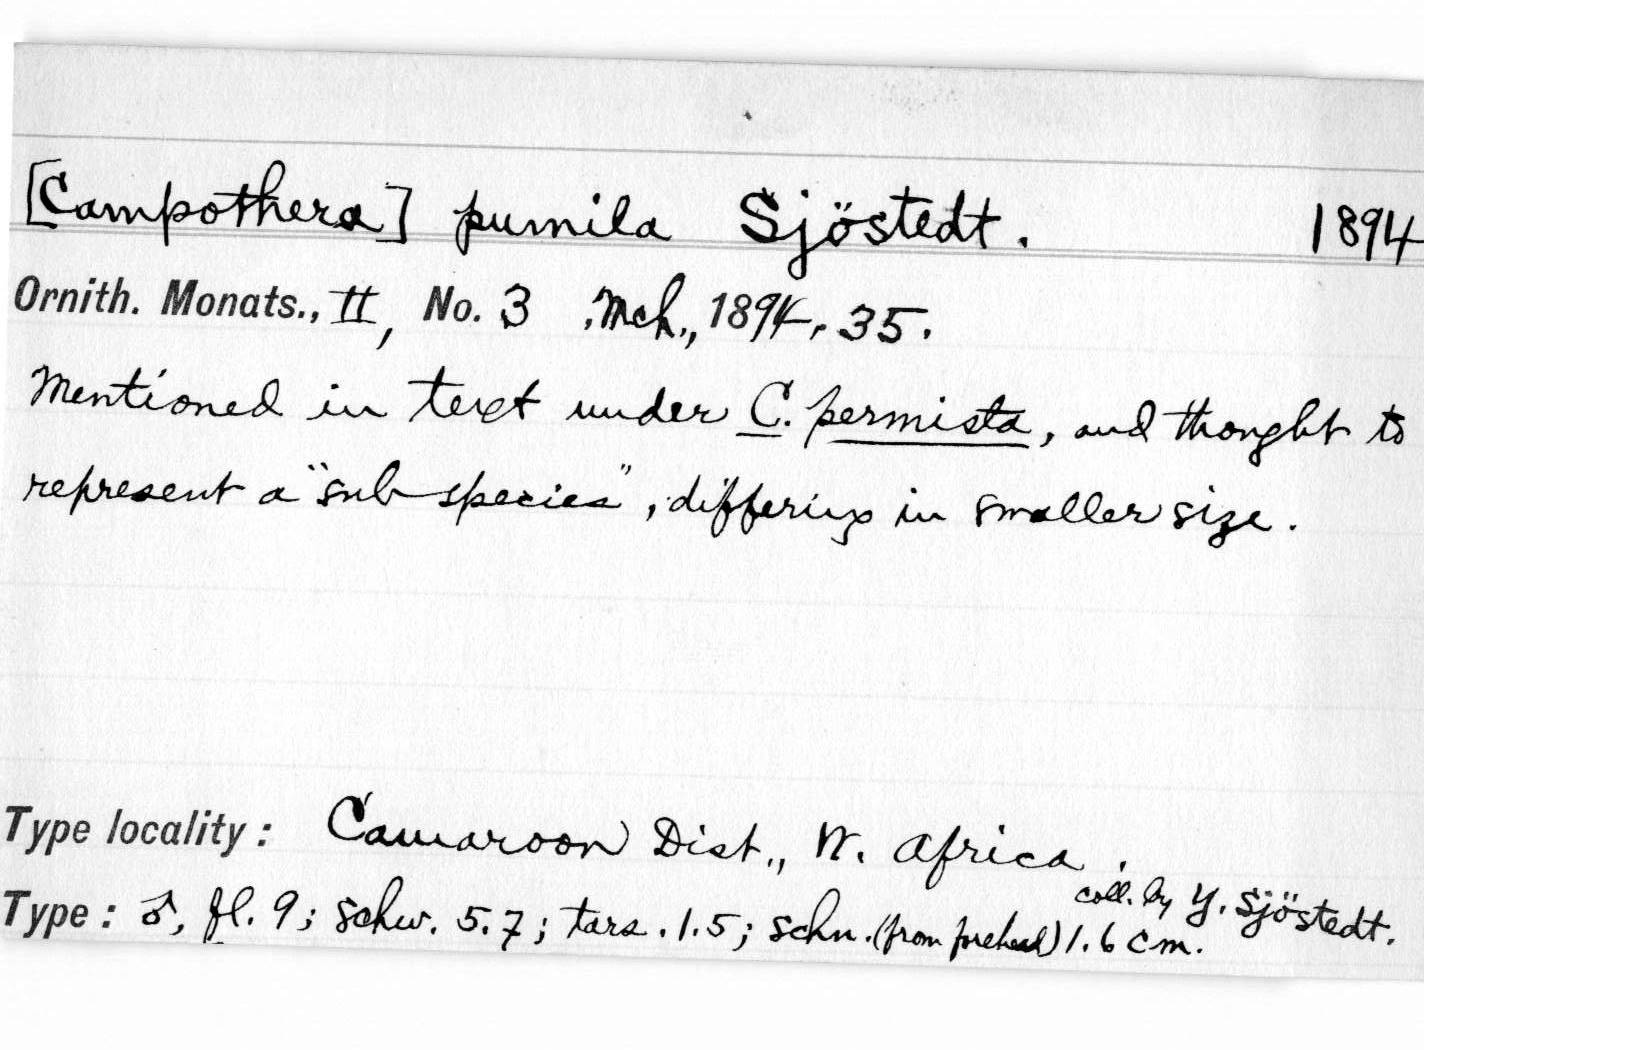 [Campothera] pumila Sjöstedt. 1894
Ornith. Monats., II, No. 3 Mch., 1894, 35.
Mentioned in text under C. permista, and thought to
represent a "sub-species", differing in smaller size.
Type locality: Camaroon Dist., W. Africa.
coll. by Y. Sjöstedt.
Type: ♂, fl. 9; schw. 5.7; tars. 1.5; schn. (from forehead) 1.6 cm.